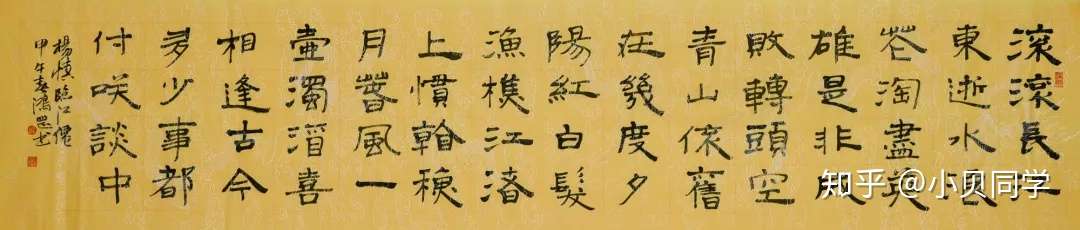 滾滾長江
東逝水浪
花淘盡英
雄是非成
敗轉頭空
青山依舊
在幾度夕
陽紅白髮
漁樵江渚
上慣看秋
月春風一
壺濁酒喜
相逢古今
多少事都
付咲談中
楊慎臨江僊
甲午春鴻書
知乎 @小贝同学